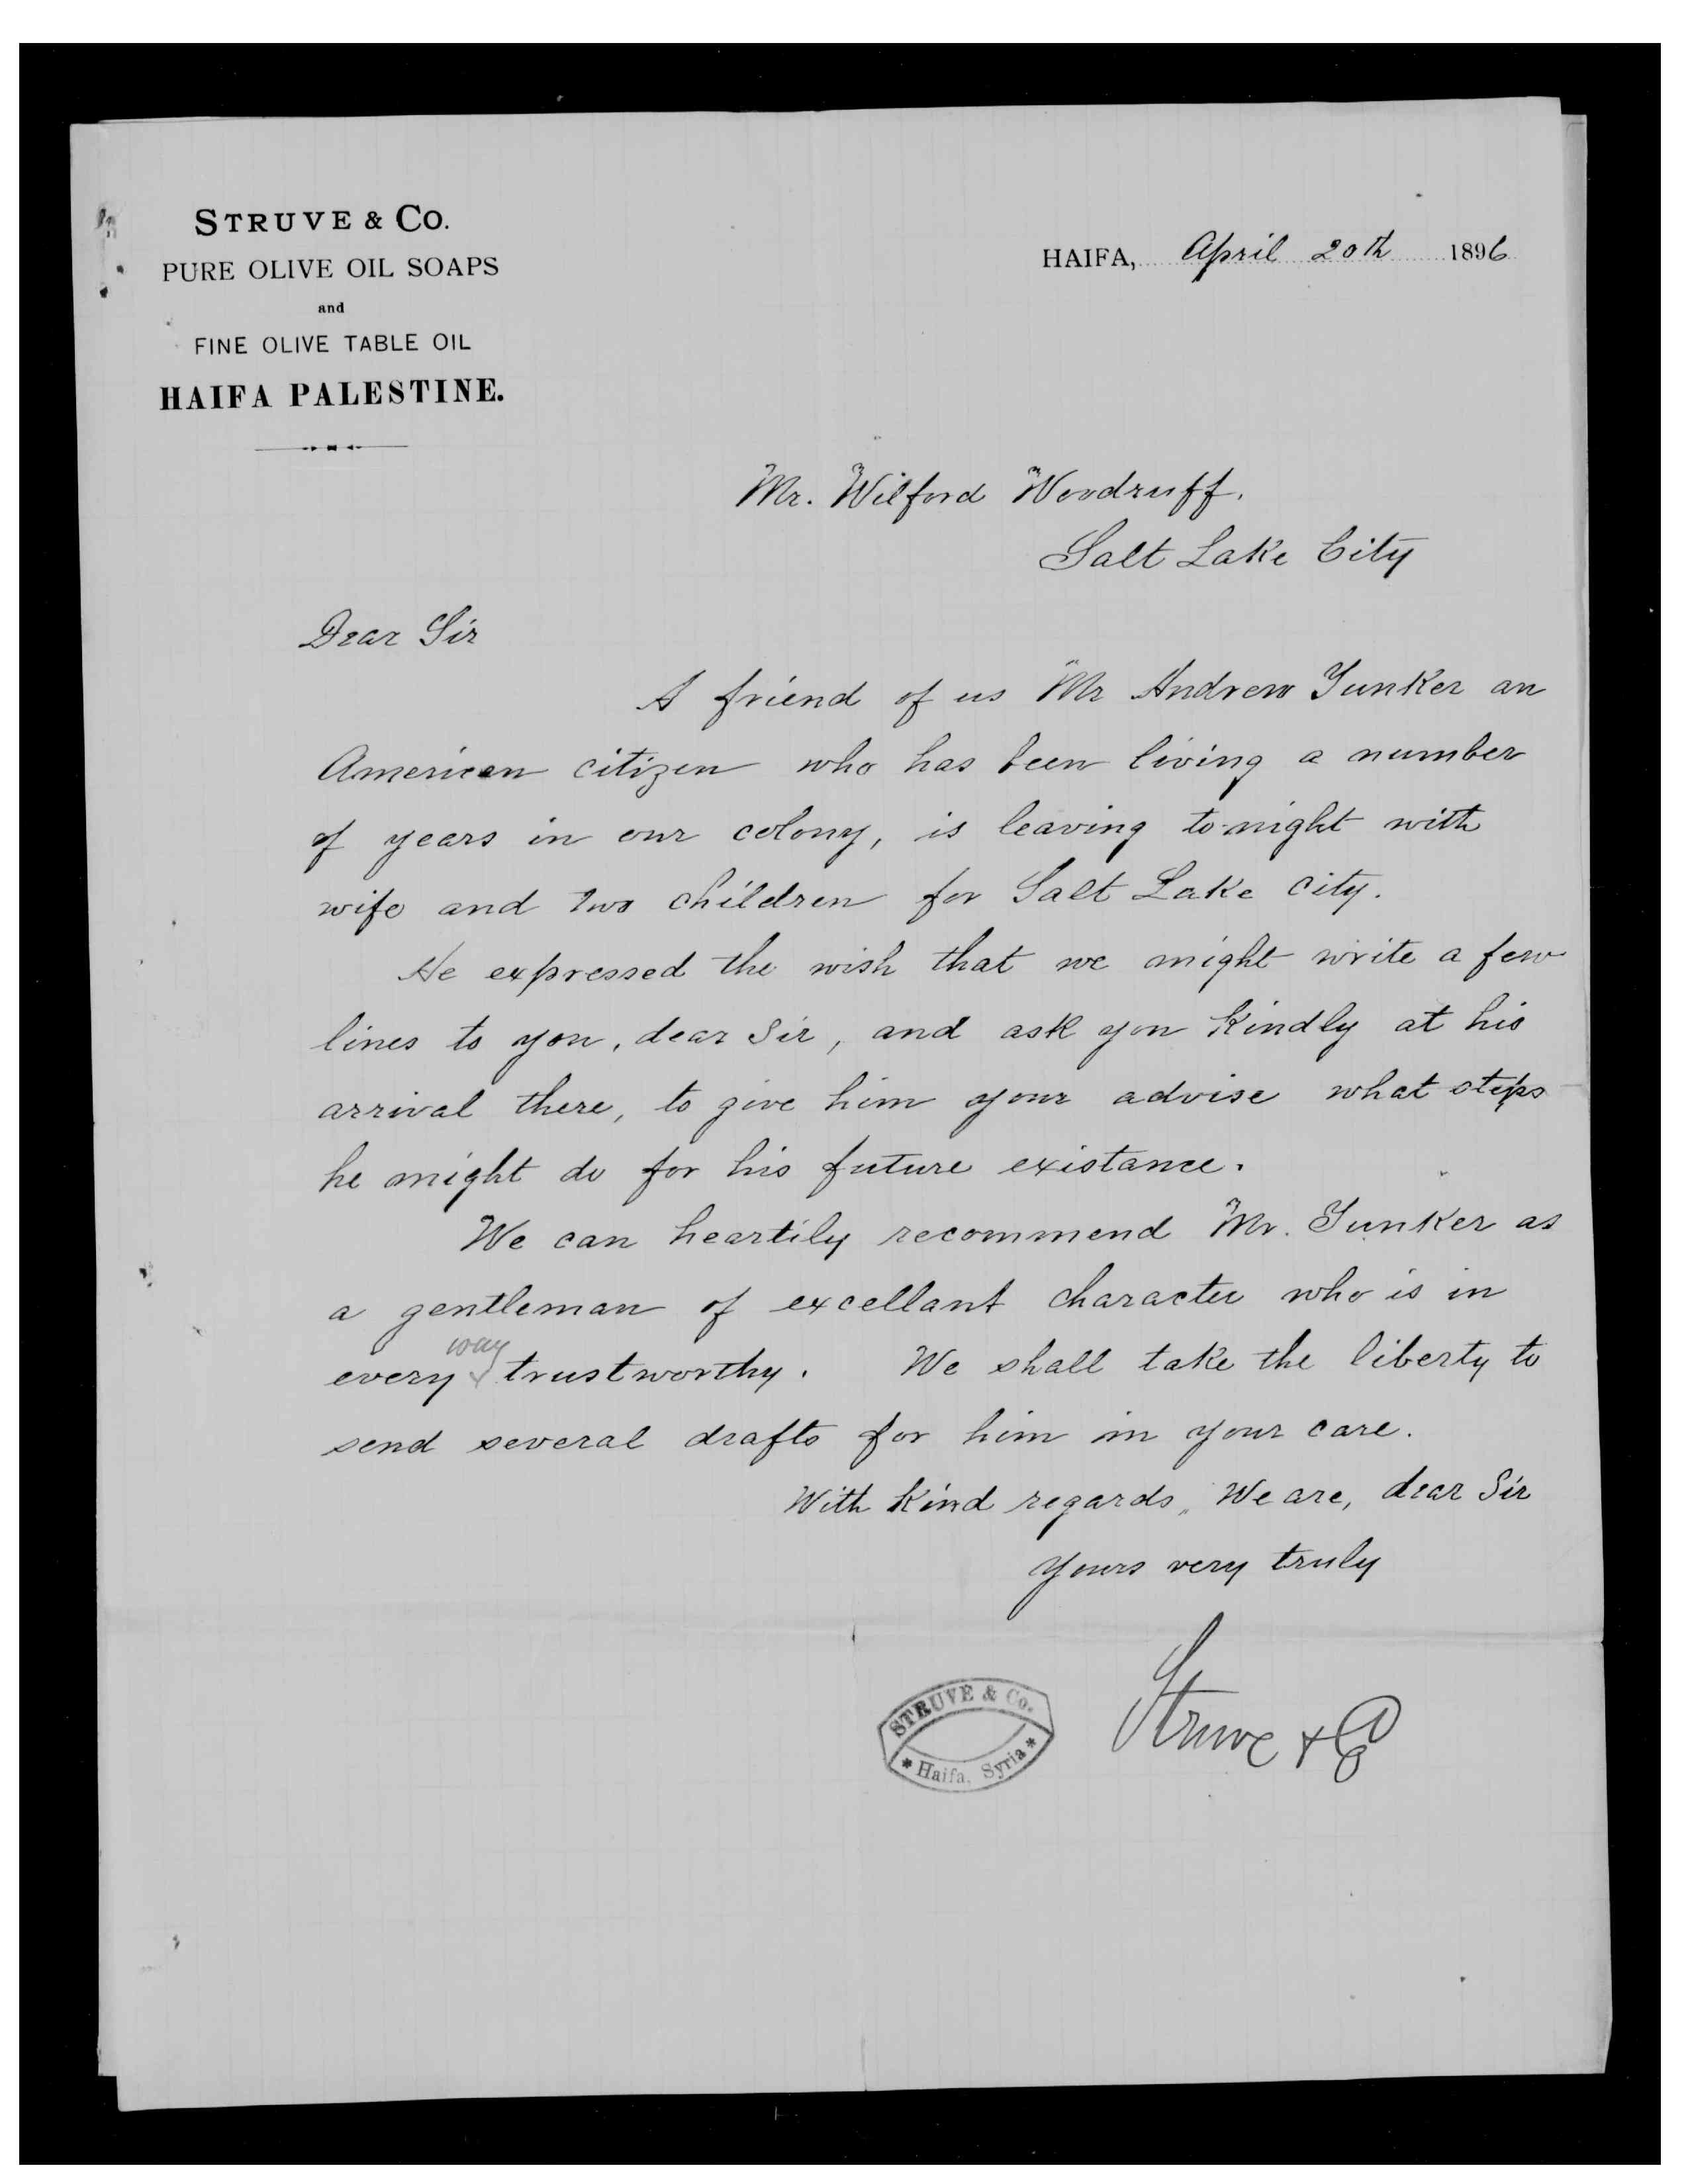 STRUVE & CO.
PURE OLIVE OIL SOAPS
and
FINE OLIVE TABLE OIL
HAIFA PALESTINE.
HAIFA, April 20th 1896
Mr. Wilford Woodruff.
Salt Lake City
Dear Sir
A friend of us Mr Andrew Junker an
American citizen who has been living a number
of years in our colony, is leaving to-night with
wife and two children for Salt Lake City.
He expressed the wish that we might write a few
lines to you, dear Sir, and ask you kindly at his
arrival there, to give him your advise what steps
he might do for his future existance.
We can heartily recommend Mr. Junker as
a gentleman of excellant character who is in
every way trustworthy. We shall take the liberty to
send several drafts for him in your care.
With kind regards, We are, dear Sir
yours very truly
Struve & Co
STRUVE & Co.
* Haifa, Syria *